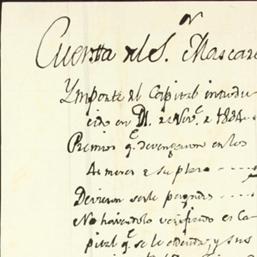 Cuenta del S.ʳ Mascar
Ymporte del Capital introdu
cido en 2 Nov.ᵉ de 1834
Premios q.ᵉ devengaron en los
At meses de su plazo
Devieron serle pagados
No haviendolo verificado el Ca
pital q.ᵉ se le adeuda, y sus